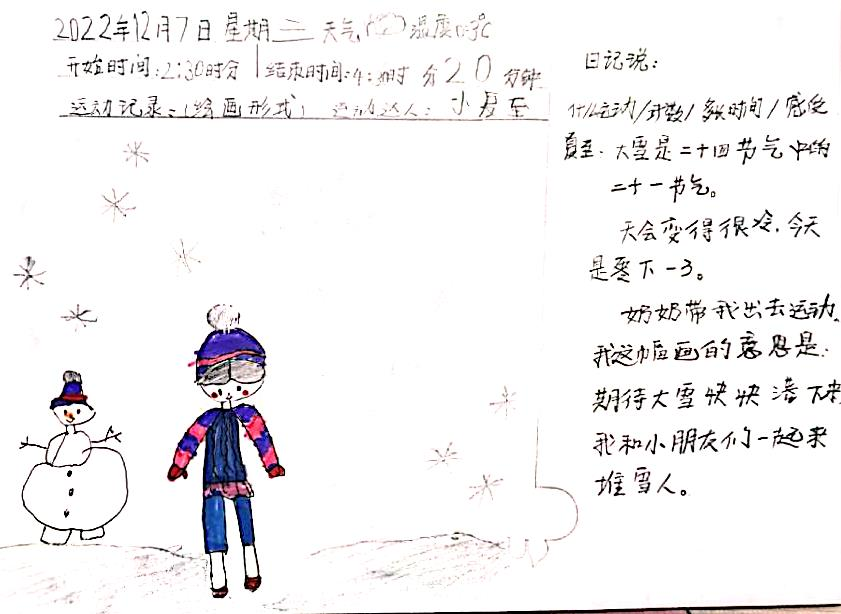 2022年12月7日 星期三 天气 温度0-3℃
开始时间:2:30时分 结束时间:4: 时 分20分钟
运动记录:(绘画形式) 运动达人: 小夏至
日记说:
什么运动/对数/多长时间/感受
夏至:大雪是二十四节气中的
二十一节气。
天会变得很冷.今天
是零下-3。
奶奶带我出去运动.
我这幅画的意思是:
期待大雪快快落下来
我和小朋友们一起来
堆雪人。